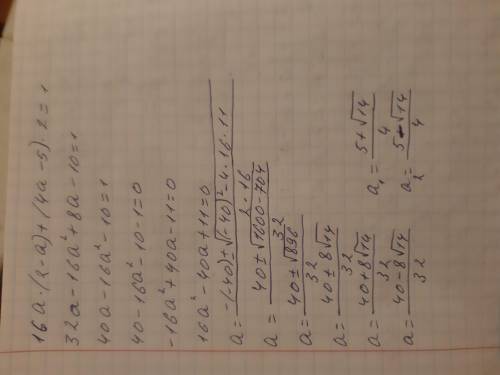 16a·(2-a)+(4a-5)·2=1
32a-16a²+8a-10=1
40a-16a²-10=1
40-16a²-10-1=0
-16a²+40a-11=0
16a²-40a+11=0
a = (-(-40)±√(-40)²-4·16·11)/(2·16)
a = (40±√1600-704)/32
a = (40±√896)/32
a = (40±8√14)/32
a = (40+8√14)/32 a₁ = (5+√14)/4
a = (40-8√14)/32 a₂ = (5-√14)/4